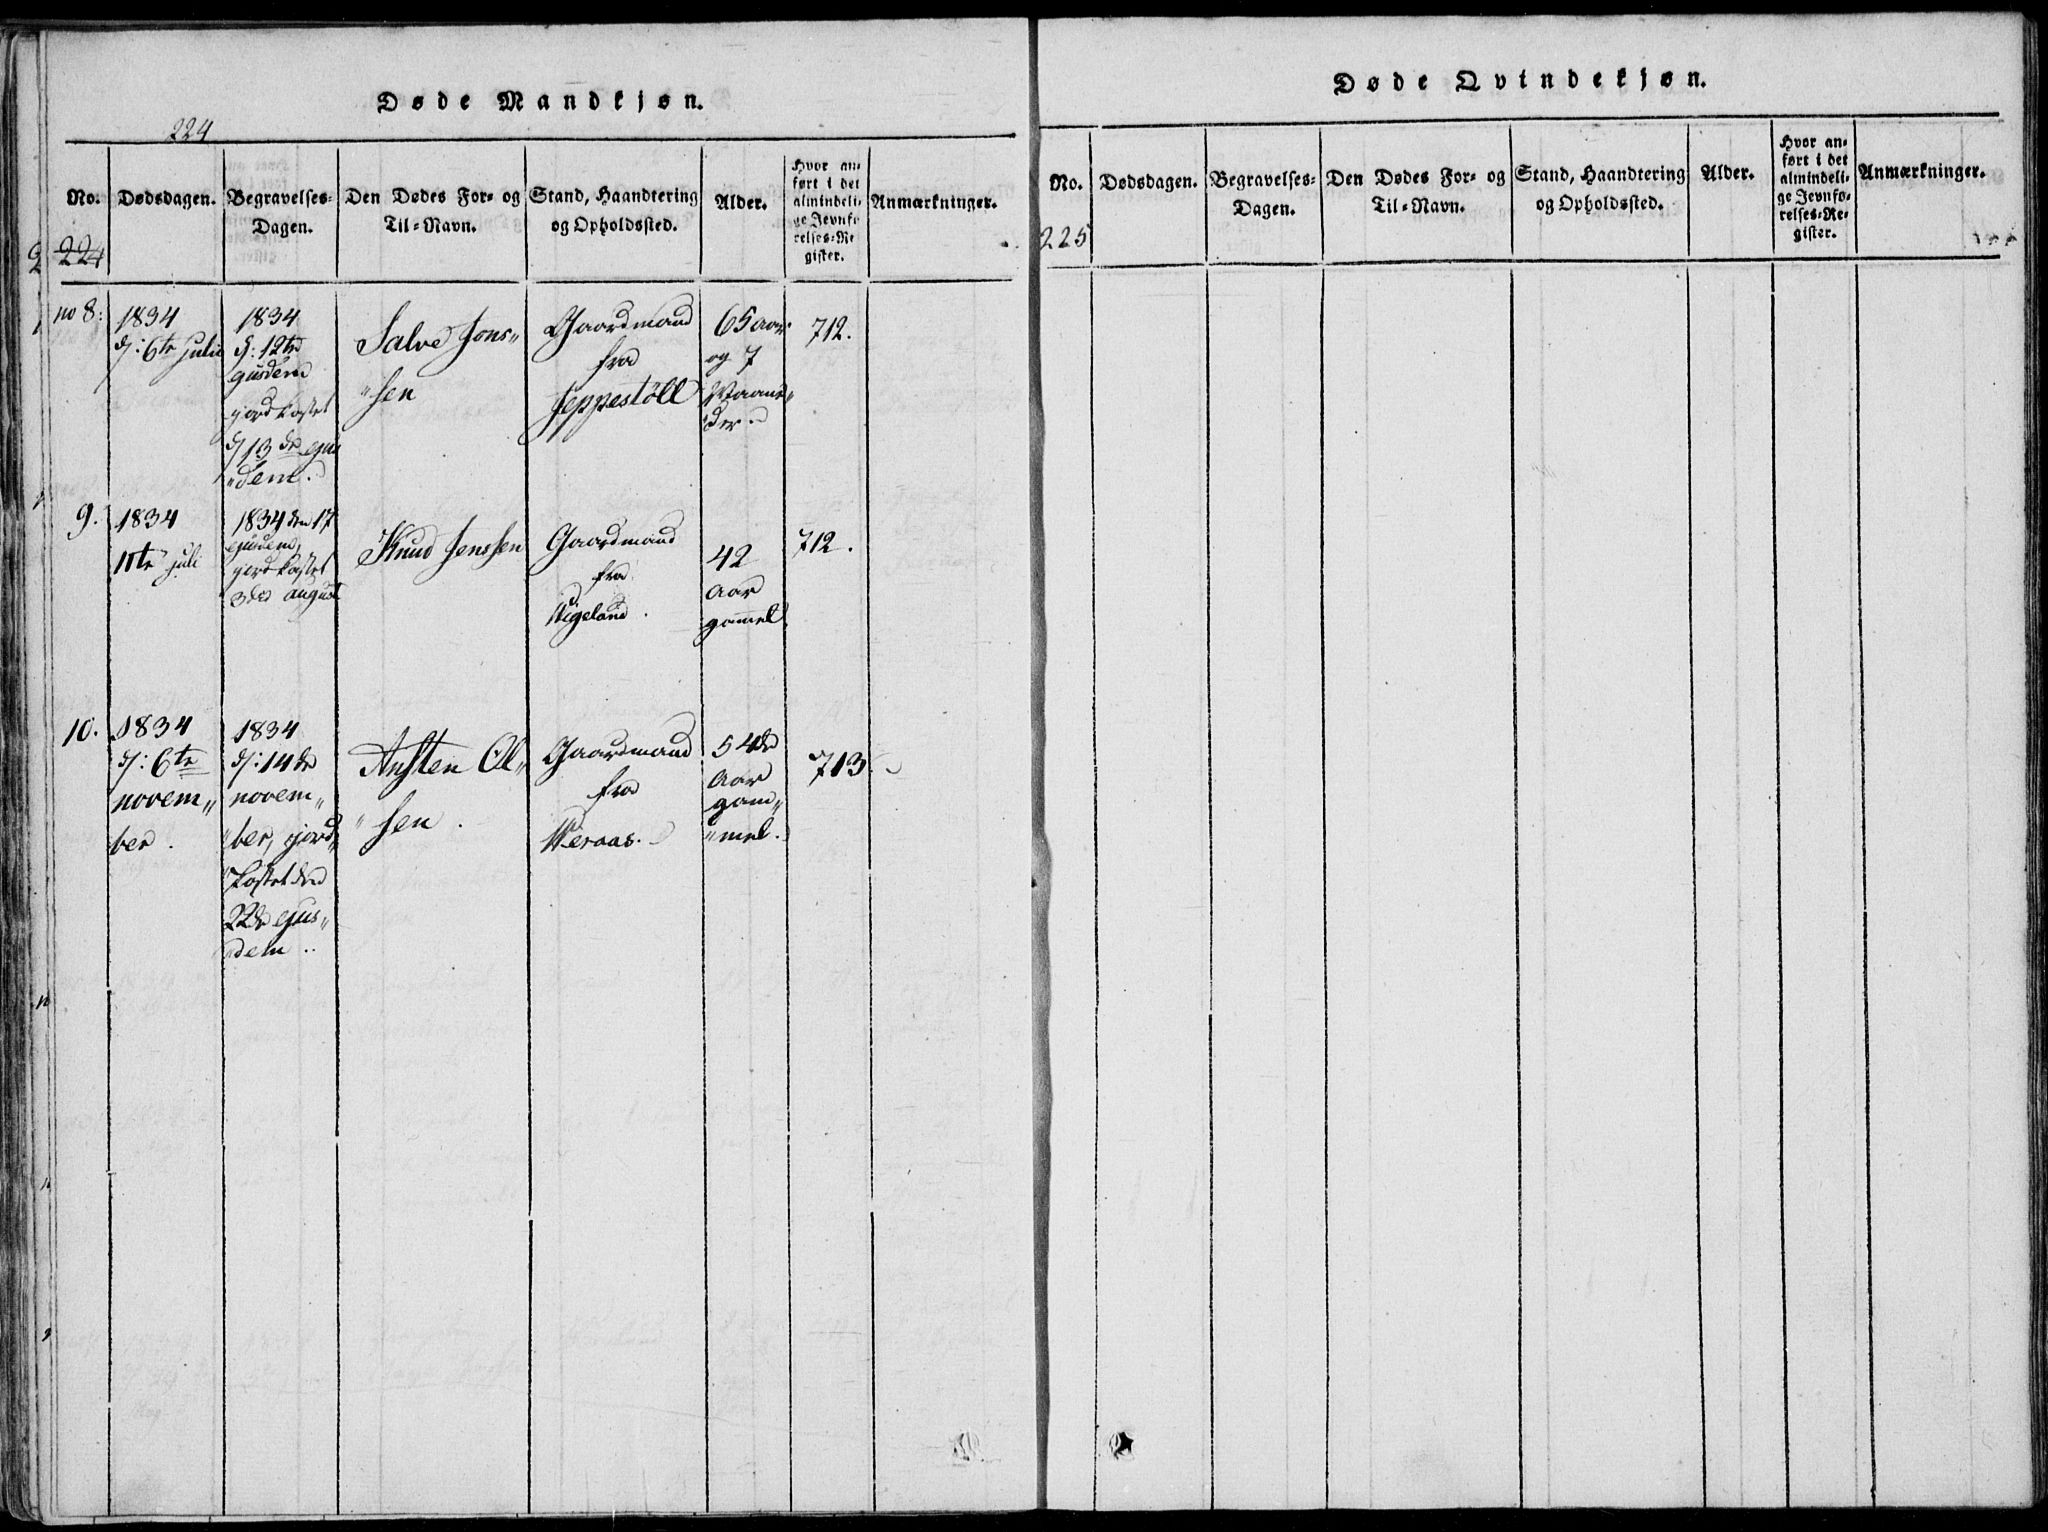 Døde Mandkjøn.
224
No.
Dødsdagen.
Begravelses-
Dagen.
Den Dødes For- og
Til-Navn.
Stand, Haandtering
og Opholdssted.
Alder.
Hvor an-
ført i det
almindeli-
ge Jevnfø-
relses-Re-
gister.
Anmærkninger.
224
no 8:
1834
d: 6te julii
1834
d: 12te
ejusdem
jordkastet
d 13de ejus
"dem.
Salve Jons"
"sen
Gaardmand
fra
Jeppestöll
65 aar
og 7
Maane"
"der.
712.
9.
1834
11te juli
1834 den 17
ejusdem,
jordkastet
3die august
Knud Jenssen
Gaardmand
fra
Vigeland.
42
Aar
gammel.
712.
10.
1834
d: 6te
novem"
ber.
1834
d: 14de
novem"
"ber, jord"
"kastet den
22de ejus"
dem..
Ansten Ol"
"sen.
Gaardmand
fra
Weraas.
54de
Aar
gam"
"mel.
713.
Døde Qvindekjøn.
No.
Dødsdagen.
Begravelses-
Dagen.
Den Dødes For- og
Til-Navn.
Stand, Haandtering
og Opholdssted.
Alder.
Hvor an-
ført i det
almindeli-
ge Jevnfø-
relses-Re-
gister.
Anmærkninger.
225